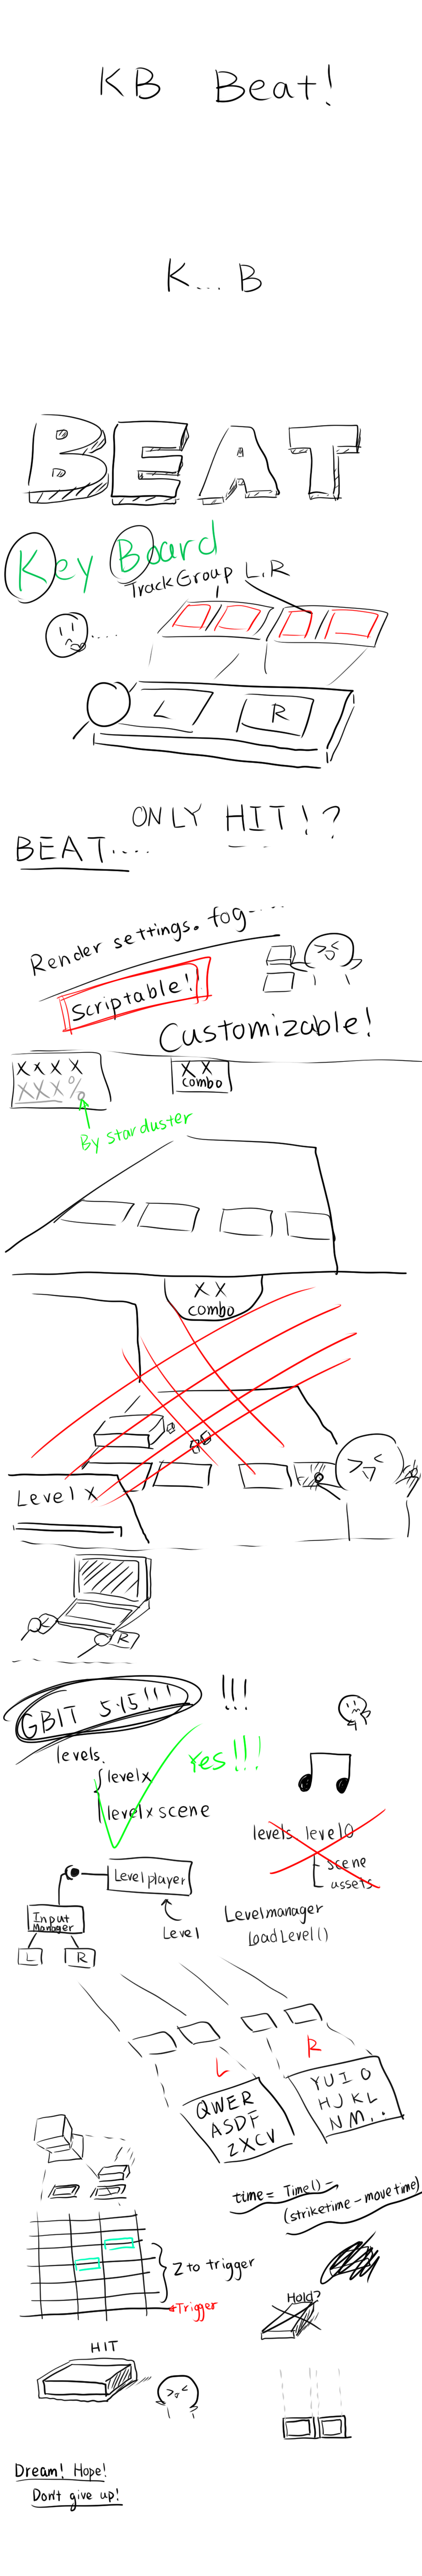 KB Beat!
K... B
BEAT
KeyBoard
TrackGroup L.R
L
R
ONLY HIT!?
BEAT....
Render settings. fog-....
Scriptable!
Customizable!
XXXX
XXX%
XX
combo
By starduster
XX
combo
Level X
R
GBIT 5.15!!!
!!!
levels.
Yes!!!
levelx
levelx scene
levels level0
scene
assets
Level player
Input
Manager
Level
Levelmanager
LoadLevel()
L
R
L
R
QWER
ASDF
ZXCV
YUIO
HJKL
NM..
time = Time() -
(striketime - movetime)
2 to trigger
Trigger
Hold?
HIT
Dream! Hope!
Don't give up!